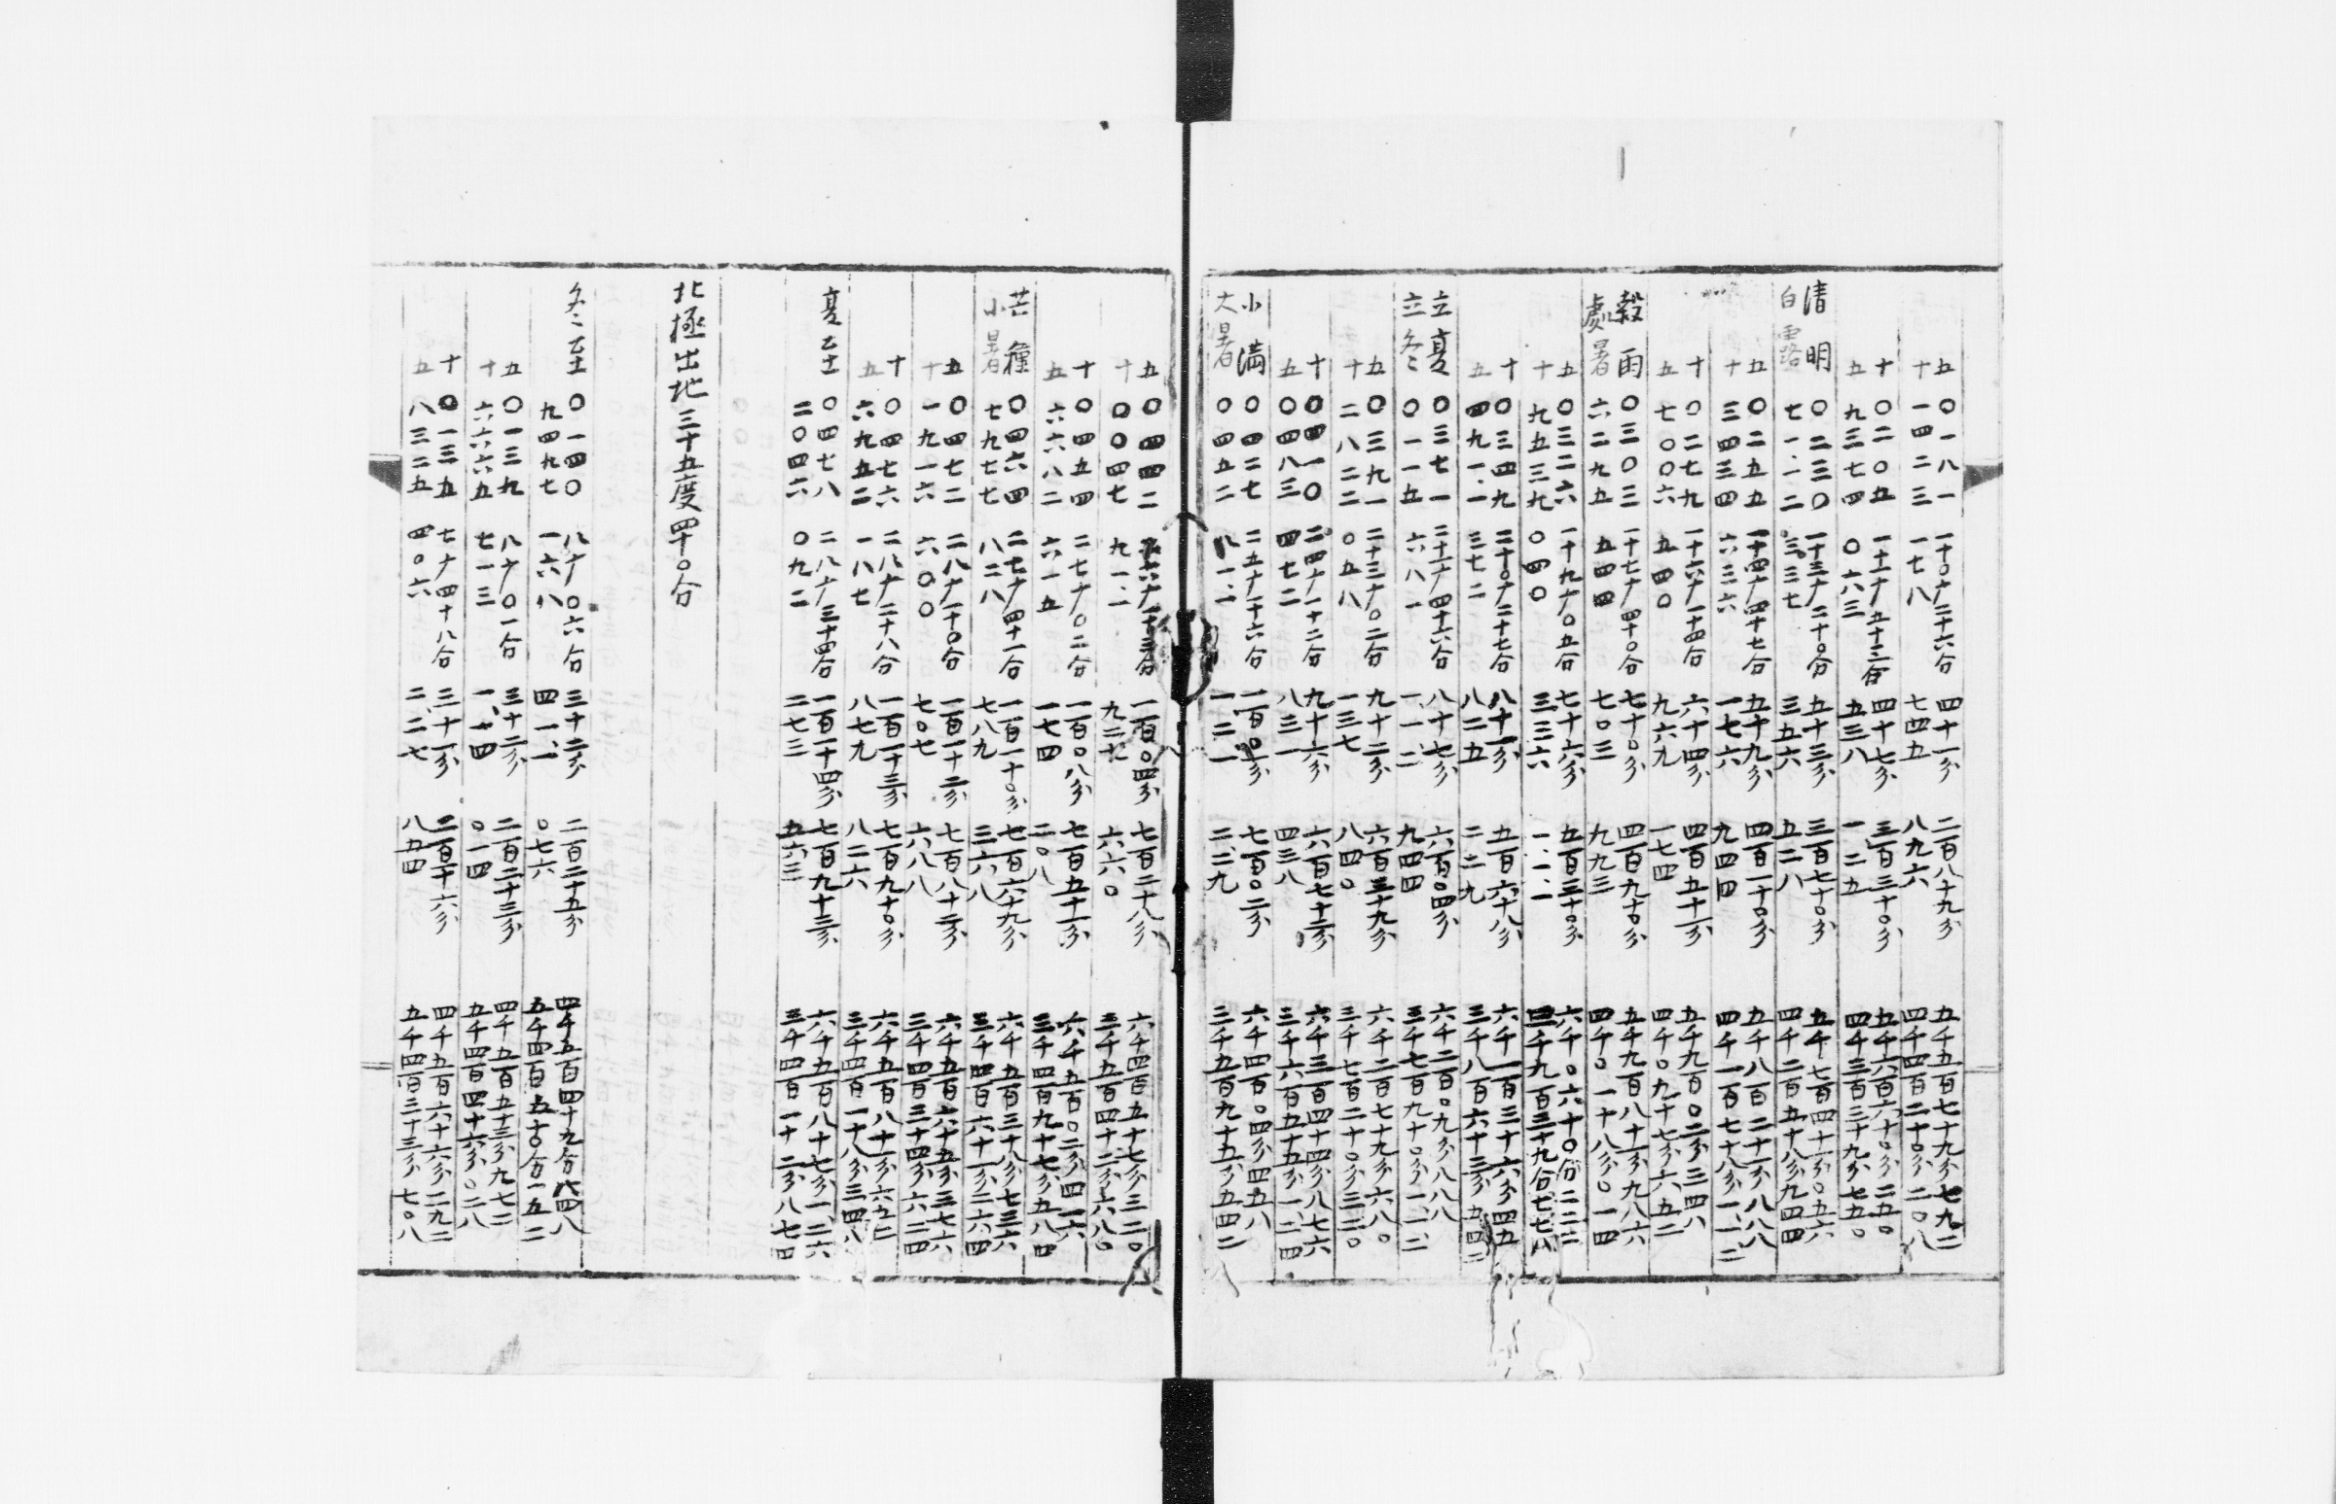 五 〇一八一 一十〇度三十六分 四十一分 二百八十九分 五千五百七十九分七九二
十 一四二三 一七八 七四五 八九六 四千四百二十〇分二〇八
十 〇二〇五 一十一度五十三分 四十七分 三百三十〇分 五千六百六十〇分二五〇
五 九三七四 〇六三 五三八 一二五 四千三百三十九分七五〇
清明 〇二三〇 一十三度二十〇分 五十三分 三百七十〇分 五千七百四十一分〇五六
白露 七一一二 三三七 三五六 五二八 四千二百五十八分九四四
五 〇二五五 一十四度四十七分 五十九分 四百一十〇分 五千八百二十一分八八八
十 三四三四 六三六 一七六 九四四 四千一百七十八分一一二
十 〇二七九 一十六度一十四分 六十四分 四百五十一分 五千九百〇二分三四八
五 七〇〇六 五四〇 九六九 一七四 四千〇九十七分六五二
穀雨 〇三〇三 一十七度四十〇分 七十〇分 四百九十〇分 五千九百八十一分九八六
處暑 六二九五 五四四 七〇三 九九三 四千〇一十八分〇一四
五 〇三二六 一十九度〇五分 七十六分 五百三十〇分 六千〇六十〇分二二二
十 九五三九 〇四〇 三三六 一一一 三千九百三十九分七七八
十 〇三四九 二十〇度二十七分 八十一分 五百六十八分 六千一百三十六分四五
五 四九一一 三七二 八二五 二二九 三千八百六十三分五四二
立夏 〇三七一 二十一度四十六分 八十七分 六百〇四分 六千二百〇九分八八八
立冬 〇一一五 六八一 一一二 九四四 三千七百九十〇分一一二
五 〇三九一 二十三度〇二分 九十二分 六百三十九分 六千二百七十九分六八〇
十 二八二二 〇五八 一三七 八四〇 三千七百二十〇分三二〇
十 〇四一〇 二十四度一十二分 九十六分 六百七十二分 六千三百四十四分八七六
五 〇四八三 四七二 八三一 四三八 三千六百五十五分一二四
小滿 〇四二七 二十五度一十六分 一百〇一分 七百〇二分 六千四百〇四分四五八
大暑 〇四五二 八一一 一二一 二二九 三千五百九十五分五四二
五 〇四四二 二十六度一十三分 一百〇四分 七百二十八分 六千四百五十七分三二〇
十 〇〇四七 九一一 九三七 六六〇 三千五百四十二分六八〇
十 〇四五四 二十七度〇二分 一百〇八分 七百五十一分 六千五百〇二分四一六
五 六六八二 六一五 一七四 二〇八 三千四百九十七分五八四
芒種 〇四六四 二十七度四十一分 一百一十〇分 七百六十九分 六千五百三十八分七三六
小暑 七九七七 八二八 七八九 三六八 三千四百六十一分二六四
五 〇四七二 二十八度一十〇分 一百一十二分 七百八十二分 六千五百六十五分三七六
十 一九一六 六〇〇 七〇七 六八八 三千四百三十四分六二四
十 〇四七六 二十八度二十八分 一百一十三分 七百九十〇分 六千五百八十一分六五二
五 六九五二 一八七 八七九 八二六 三千四百一十八分三四八
夏至 〇四七八 二十八度三十四分 一百一十四分 七百九十三分 六千五百八十七分一二六
二〇四六 〇九二 二七三 五六三 三千四百一十二分八七四
北極出地三十五度四十〇分
冬至 〇一四〇 八度〇六分 三十二分 二百二十五分 四千五百四十九分八四八
九四九七 一六八 四一一 〇七六 五千四百五十〇分一五二
五 〇一三九 八度〇一分 三十二分 二百二十三分 四千五百五十三分九七二
十 六六六五 七一三 一一四 〇一四 五千四百四十六分〇二八
十 〇一三五 七度四十八分 三十一分 二百一十六分 四千五百六十六分二九二
五 八三二五 四〇六 二二七 八五四 五千四百三十三分七〇八